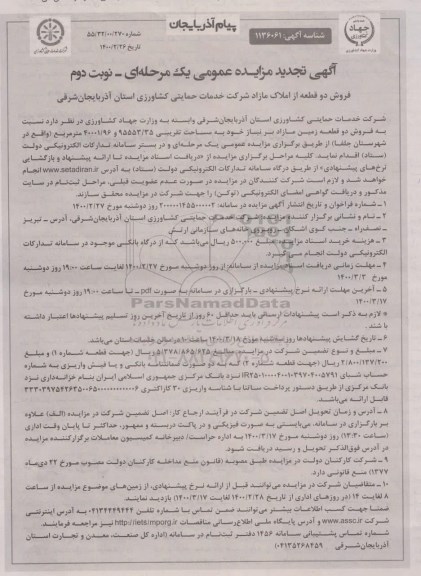 جهاد کشاورزی
شناسه آگهی: ۱۱۳۶۰۶۱
پیام آذربایجان
شماره ۵۵/۳۲/۰۰/۲۷۰
تاریخ ۱۴۰۰/۲/۲۶
آگهی تجدید مزایده عمومی یک مرحله‌ای - نوبت دوم
فروش دو قطعه از املاک مازاد شرکت خدمات حمایتی کشاورزی استان آذربایجان‌شرقی
شرکت خدمات حمایتی کشاورزی استان آذربایجان‌شرقی وابسته به وزارت جهاد کشاورزی در نظر دارد نسبت
به فروش دو قطعه زمین مازاد بر نیاز خود به مساحت تقریبی ۹۵۵۵۳/۳۵ و ۴۰۰۰۱/۹۶ مترمربع (واقع در
شهرستان جلفا) از طریق برگزاری مزایده عمومی یک مرحله‌ای و در بستر سامانه تدارکات الکترونیکی دولت
(ستاد) اقدام نماید. کلیه مراحل برگزاری مزایده از «دریافت اسناد مزایده تا ارائه پیشنهاد و بازگشایی
نرخ‌های پیشنهادی» از طریق درگاه سامانه تدارکات الکترونیکی دولت (ستاد) به آدرس www.setadiran.ir انجام
خواهد شد و لازم است شرکت کنندگان در مزایده در صورت عدم عضویت قبلی، مراحل ثبت‌نام در سایت
مذکور و دریافت گواهی امضای الکترونیکی (توکن) را جهت شرکت در مزایده محقق سازند.
۱ - شماره فراخوان و تاریخ انتشار آگهی مزایده در سامانه: ۲۰۰۰۰۰۱۴۵۵۰۰۰۰۰۲ روز دوشنبه مورخ ۱۴۰۰/۲/۲۷
۲ - نام و نشانی برگزار کننده مزایده: شرکت خدمات حمایتی کشاورزی استان آذربایجان‌شرقی، آدرس - تبریز
- جنب کوی اشکان - روبروی خانه‌های سازمانی ارتش
۳ - هزینه خرید اسناد مزایده: مبلغ ۵۰۰/۰۰۰ ریال می‌باشد که از درگاه بانکی موجود در سامانه تدارکات
الکترونیکی دولت انجام می‌گیرد.
۴ - مهلت زمانی دریافت اسناد مزایده از سامانه: از روز دوشنبه مورخ ۱۴۰۰/۲/۲۷ لغایت ساعت ۱۹:۰۰ روز دوشنبه
مورخ ۱۴۰۰/۳/۳
۵ - آخرین مهلت ارائه نرخ پیشنهادی - بارگزاری در سامانه به صورت pdf - تا ساعت ۱۹:۰۰ روز دوشنبه مورخ
۱۴۰۰/۳/۱۷
* لازم به ذکر است پیشنهادات ارسالی باید حداقل ۶۰ روز از تاریخ آخرین روز تسلیم پیشنهادها اعتبار داشته
باشند.
۶ - تاریخ گشایش پیشنهادها روز سه‌شنبه مورخ ۱۴۰۰/۳/۱۸ ساعت ۱۰ در سالن جلسات استان می‌باشد.
۷ - مبلغ و نوع تضمین شرکت در مزایده: مبالغ ۵/۳۷۸/۸۶۵/۶۲۵ ریال (جهت قطعه شماره ۱) و مبلغ
۲/۸۰۰/۱۳۷/۲۰۰ ریال (جهت قطعه شماره ۲) که به دو صورت ضمانتنامه بانکی و یا فیش واریزی به شماره
حساب شبای نزد بانک مرکزی جمهوری اسلامی ایران بنام خزانه‌داری نزد
بانک مرکزی از طریق دستور پرداخت ساتنا با شناسه واریزی ۳۰ کاراکتری
قابل ارائه می‌باشد.
۸ - آدرس و زمان تحویل اصل تضمین شرکت در فرآیند ارجاع کار: اصل تضمین شرکت در مزایده (الف) علاوه
بر بارگزاری در سامانه، می‌بایستی به صورت فیزیکی و در پاکت دربسته و ممهور، حداکثر تا پایان وقت اداری
(ساعت ۱۳:۳۰) روز دوشنبه مورخ ۱۴۰۰/۳/۱۷ به اداره حراست/ دبیرخانه کمیسیون معاملات برگزارکننده مزایده
در آدرس فوق‌الذکر تحویل و رسید دریافت شود.
۹ - شرکت کارکنان دولت در مزایده طبق مصوبه (قانون منع مداخله کارکنان دولت مصوب مورخ ۲۲ دی‌ماه
۱۳۳۷) منع قانونی دارد.
۱۰ - متقاضیان شرکت در مزایده می‌توانند قبل از ارائه نرخ پیشنهادی، از زمین‌های موضوع مزایده از ساعت
۸ لغایت ۱۴ (در روزهای اداری از تاریخ ۱۴۰۰/۲/۲۸ لغایت ۱۴۰۰/۳/۱۷) بازدید نمایند.
ضمنا جهت کسب اطلاعات بیشتر می‌توانند ضمن تماس با شماره تلفن ۰۴۱۳۴۴۴۹۴۴۴ به آدرس اینترنتی
شرکت www.assc.ir و آدرس پایگاه ملی اطلاع‌رسانی مناقصات http://iets.mporg.ir نیز مراجعه فرمایند
شماره تماس پشتیبانی سامانه ۱۴۵۶ دفتر ثبت‌نام در سامانه (اداره کل صنعت، معدن و تجارت استان
آذربایجان‌شرقی ۰۴۱۳۵۲۶۸۴۵۹)
ParsNamadData